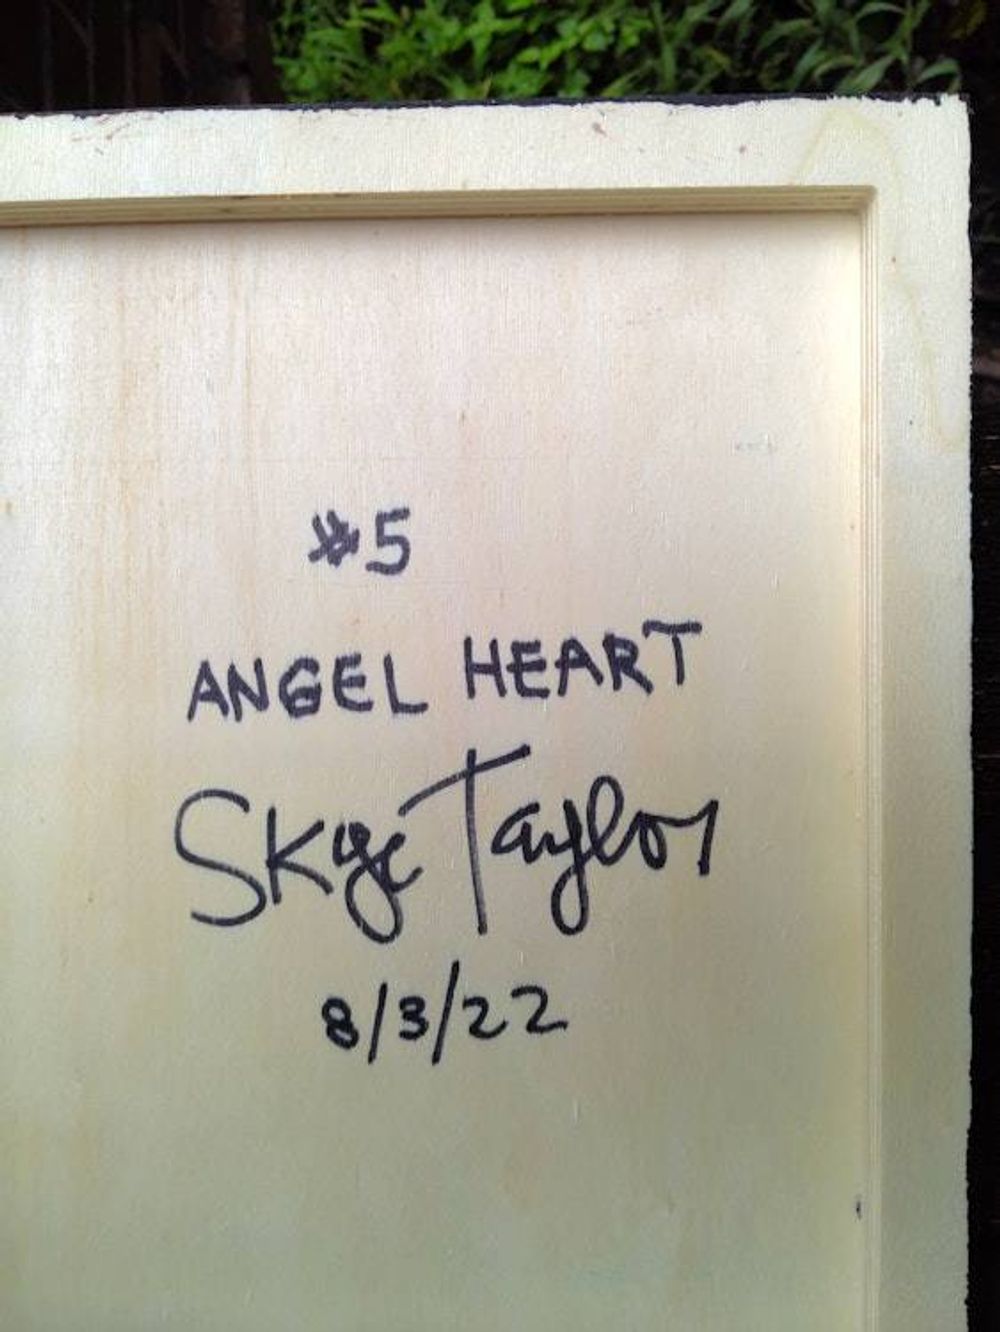 #5
ANGEL HEART
Skye Taylor
8/3/22